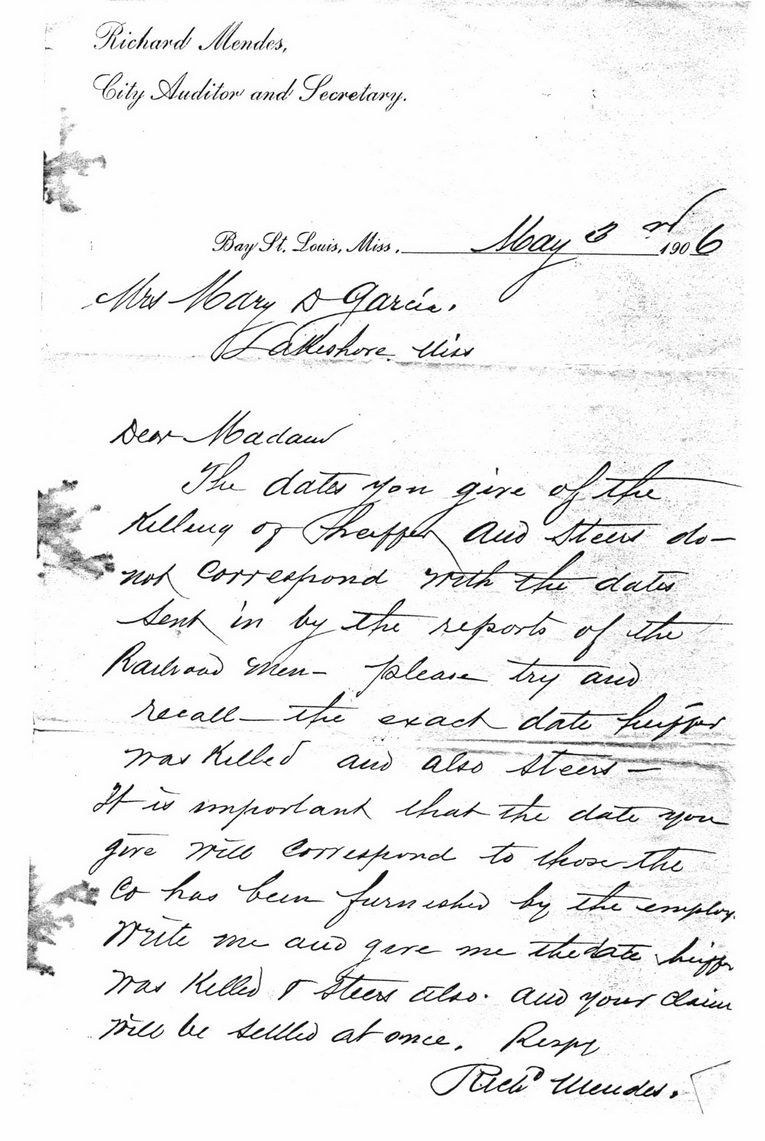 Richard Mendes,
City Auditor and Secretary.
Bay St. Louis, Miss. May 3rd 1906
Mrs Mary D Garcia.
Lakeshore Miss
Dear Madam
The dates you give of the
Killing of heiffer and steers do-
not correspond with the dates
sent in by the reports of the
Railroad men- please try and
recall- the exact date heiffer
was Killed and also steers-
It is important that the date you
give will correspond to those the
Co has been furnished by the employ.
Write me and give me the date heiffer
was Killed & steers also. and your claim
will be settled at once. Respy
Richd Mendes.